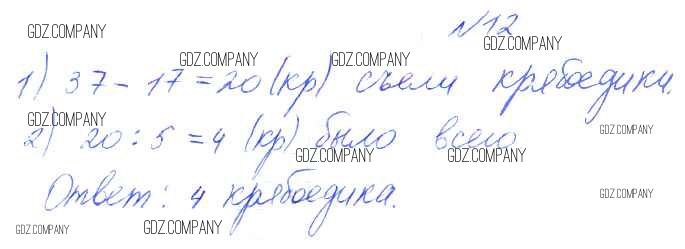 №12
1) 37 - 17 = 20 (кр) съели крябоедики.
2) 20 : 5 = 4 (кр) было всего
Ответ: 4 крябоедика.
GDZ.COMPANY
GDZ.COMPANY
GDZ.COMPANY
GDZ.COMPANY
GDZ.COMPANY
GDZ.COMPANY
GDZ.COMPANY
GDZ.COMPANY
GDZ.COMPANY
GDZ.COMPANY
GDZ.COMPANY